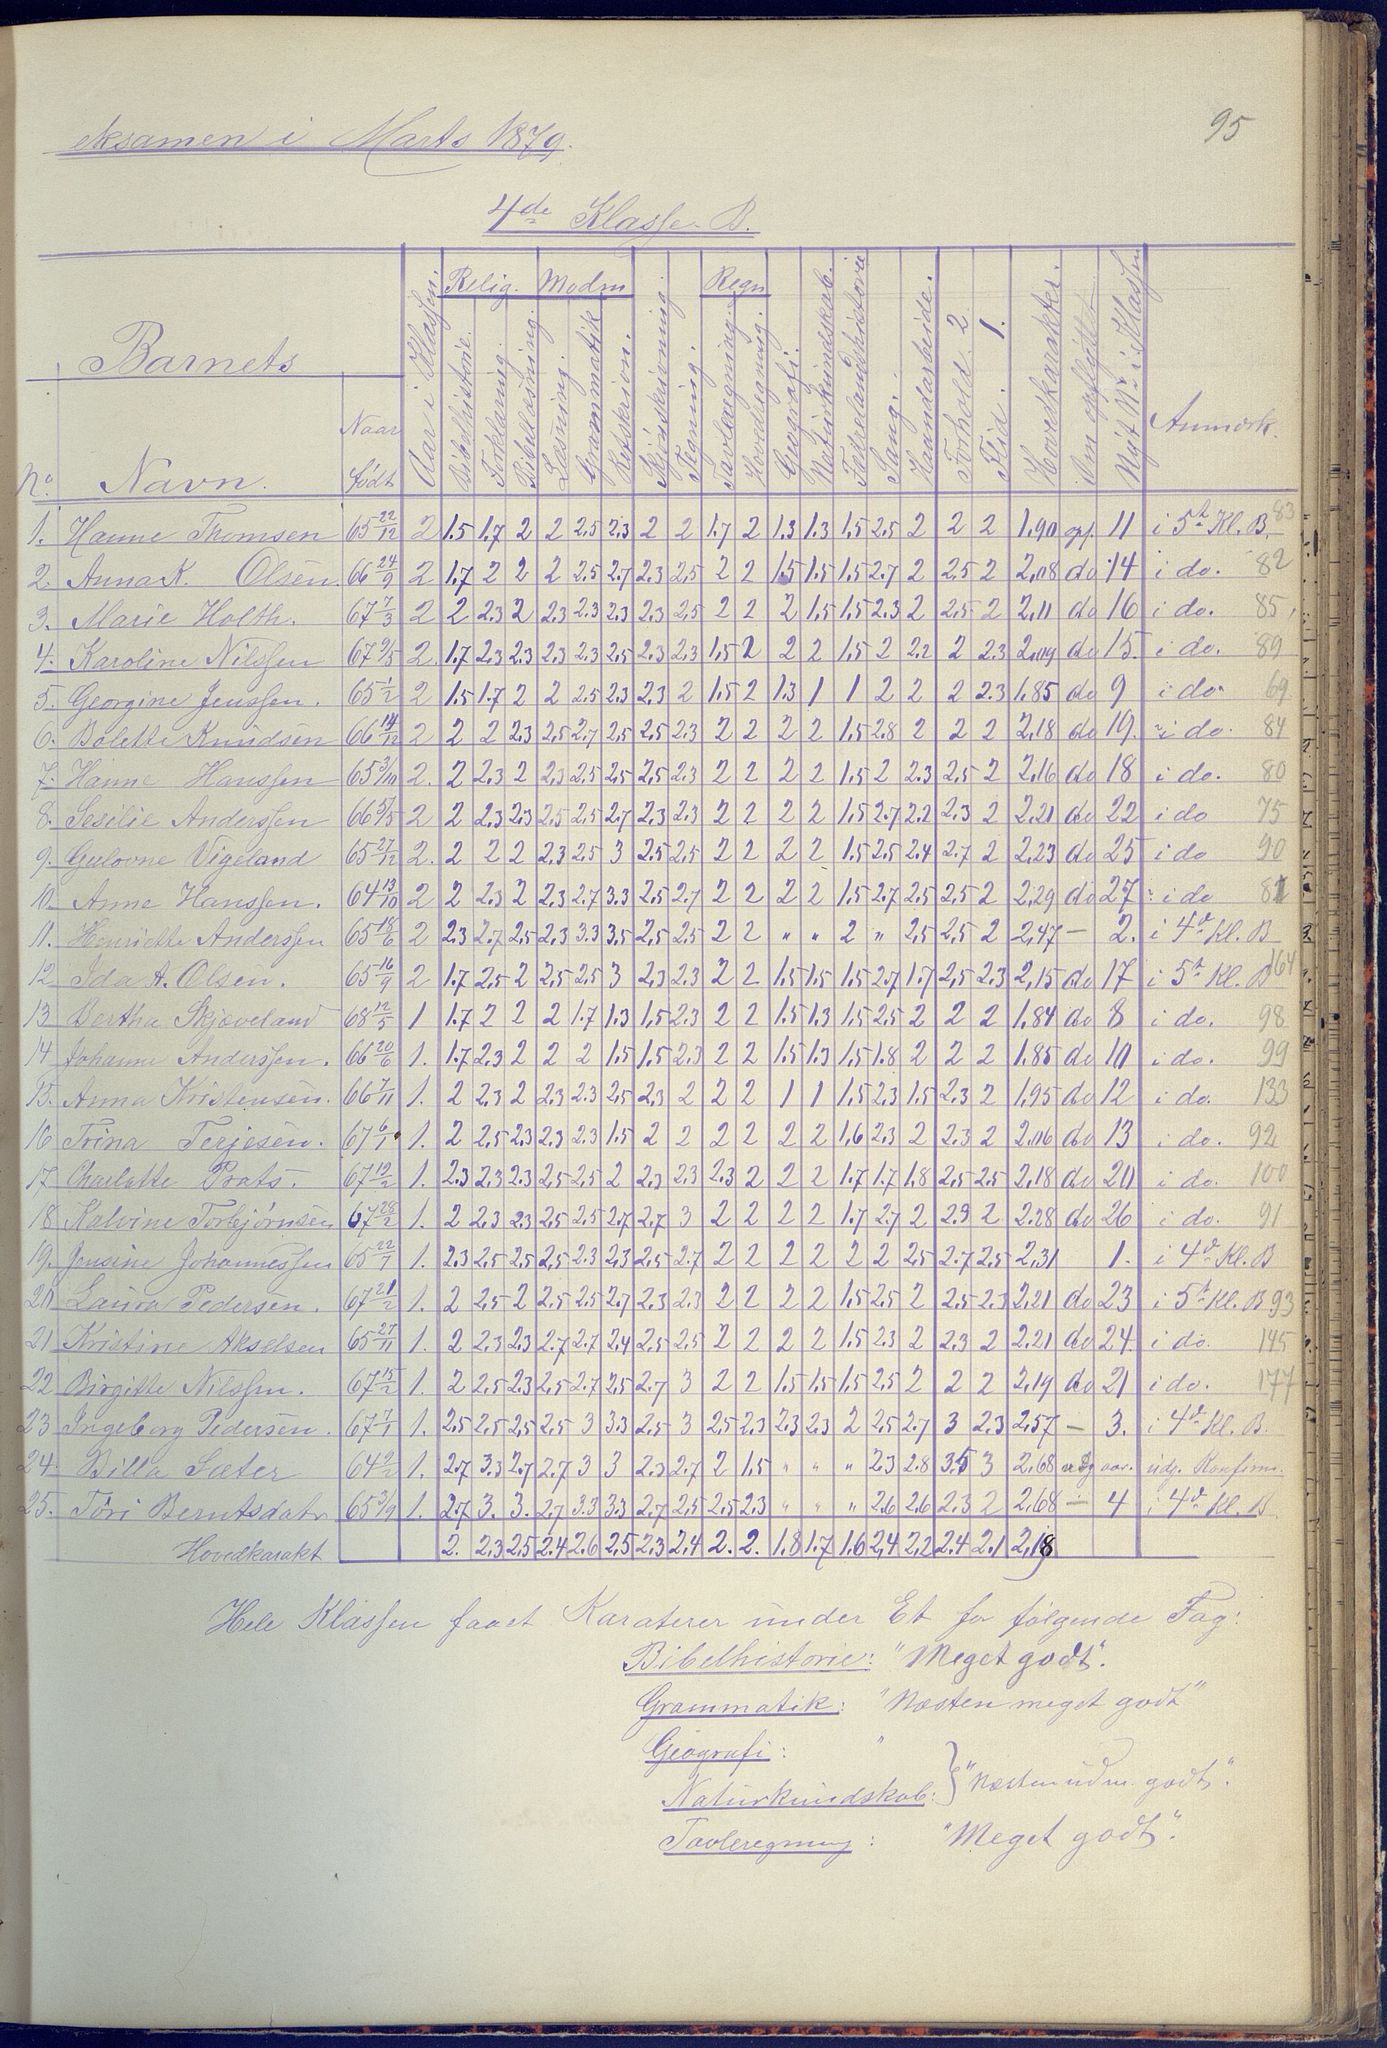 95
eksamen i Marts 1879.
4de Klasse. B.
Barnets
No. Navn. Naar født Aar i Klassen. Relig. Bibelhistorie. Forklaring. Bibellæsning. Modsm Læsning. Grammatik Retskrivn. Skjönskrivning. Tegning. Regn Tavleregning. Hovedregning. Geografi. Naturkundskab. Fædrelandshistorie Sang. Haandarbeide. Forhold. 2. Flid. 1. Hovedkarakter. Om opflyttet Nyt No. i Klassen Anmærk.
1. Hanne Thomsen 65 22/12 2 1.5 1.7 2 2 2.5 2.3 2 2 1.7 2 1.3 1.3 1.5 2.5 2 2 2 1.90 op. 11 i 5t Kl. B. 83
2. Anna K. Olsen. 66 24/9 2 1.7 2 2 2 2.5 2.7 2.3 2.5 2 2 1.5 1.5 1.5 2.7 2 2.5 2 2.08 do 14 i do. 82
3. Marie Holth. 67 7/3 2 2 2.3 2 2.3 2.3 2.3 2.3 2.5 2 2 2 1.5 1.5 2.3 2 2.5 2 2.11 do 16 i do. 85
4. Karoline Nilssen 67 9/5 2 1.7 2.3 2.3 2.3 2.3 2.5 2.3 2.3 1.5 2 2 2 1.5 2 2.2 2 2.3 2.09 do 15. i do. 89
5. Georgine Jenssen. 65 1/2 2 1.5 1.7 2 2 2.5 2.3 2.3 2 1.5 2 1.3 1 1 2 2 2 2.3 1.85 do 9 i do. 69.
6. Bolette Knudsen 66 14/12 2 2 2 2.3 2.5 2.7 2.5 2.5 2.3 2 2 2 2 1.5 2.8 2 2 2 2.18 do 19. i do. 84
7. Hanne Hanssen 65 3/10 2. 2 2.3 2 2.3 2.5 2.5 2.5 2.3 2 2 2 2 1.5 2 2.3 2.5 2 2.16 do 18 i do. 80
8. Sesilie Anderssen 66 5/5 2 2 2.3 2.3 2.5 2.5 2.7 2.3 2.3 2 2 2 2 1.5 2.7 2.2 2.3 2 2.21 do 22 i do 75
9. Gulovne Vigeland 65 27/12 2. 2 2 2 2.3 2.5 3 2.5 2.5 2 2 2 2 1.5 2.5 2.4 2.7 2 2.23 do 25 i do 90
10. Anne Hanssen. 64 13/10 2 2 2.3 2 2.3 2.7 3.3 2.5 2.7 2 2 2 2 1.5 2.7 2.5 2.5 2 2.29 do 27 i do 81
11. Henriette Anderssen 65 18/6 2 2.3 2.7 2.5 2.3 3.3 3.5 2.5 2.5 2 2 " " 2 " 2.5 2.5 2 2.47 — 2. i 4d Kl. B
12 Ida A. Olsen. 65 16/9 2 1.7 2.5 2 2.5 2.5 3 2.3 2.3 2 2 1.5 1.5 1.5 2.7 1.7 2.5 2.3 2.15 do 17 i 5t Kl. B 164
13 Bertha Skjæveland 68 12/5 1 1.7 2 2 2 1.7 1.3 1.5 2.3 2 2 1.5 1.3 1.5 2.5 2 2 2 1.84 do 8 i do. 98
14 Johanne Anderssen. 66 20/6 1. 1.7 2.3 2 2 2 1.5 1.5 2.3 2 2 1.5 1.3 1.5 1.8 2 2 2 1.85 do 10 i do. 99
15. Anna Kristensen. 66 7/11 1. 2 2.3 2 2.3 2.3 2.5 2.3 2 2 2 1 1 1.5 2.3 1.5 2.3 2 1.95 do 12 i do. 133
16 Trina Terjesen. 67 6/1 1. 2 2.5 2.3 2.3 2.3 1.5 2 2 2 2 2 2 1.6 2.3 2 2.3 2 2.06 do 13 i do. 92
17 Charlotte Prats. 67 12/2 1. 2.3 2.3 2.3 2.5 2.5 2 2.3 2.3 2.3 2 2 2 1.7 1.7 1.8 2.5 2.5 2.18 do 20 i do. 100
18 Kalvine Torbjørnsen 67 28/2 1. 2 2.3 2.3 2.5 2.5 2.7 2.7 3 2 2 2 2 1.7 2.7 2 2.9 2 2.28 do 26 i do. 91
19. Jensine Johannessen 65 22/7 1. 2.3 2.5 2.5 2.5 2.3 2.3 2.5 2.7 2 2 2 2 2 2 2.5 2.7 2.5 2.31 1. i 4d Kl. B
20 Laura Pedersen. 67 21/2 1. 2 2.5 2 2.5 2.5 2.7 2.3 2.3 2 2 2 2 1.5 2.5 2 2.5 2.3 2.21 do 23 i 5t Kl. B 93
21 Kristine Akselsen 65 27/11 1. 2 2.3 2.3 2.7 2.7 2.4 2.5 2.5 2 2 2 2 1.5 2.3 2 2.3 2 2.21 do 24. i do. 145
22 Birgitte Nilssen. 67 15/2 1. 2 2.5 2.3 2.5 2.7 2.5 2.7 3 2 2 1.5 1.5 1.5 2.5 2 2 2 2.19 do 21 i do. 177
23 Ingeborg Pedersen. 67 7/1 1. 2.5 2.5 2.5 2.5 3 3.3 2.5 3 2.5 2.3 2.3 2.3 2 2.5 2.7 3 2.3 2.57 — 3. i 4d Kl. B.
24. Billa Sæter 64 9/2 1. 2.7 3.3 2.7 2.7 3 3 2.3 2.7 2 1.5 " " " 2.3 2.8 3.5 3 2.68 aar. udg. Konfirm.
25. Töri Berntsdatr 65 3/9 1. 2.7 3. 3. 2.7 3.3 3.3 2.7 2.5 2.5 2.3 " " " 2.6 2.6 2.3 2 2.68 — 4 i 4d Kl. B
Hovedkarakt 2. 2.3 2.5 2.4 2.6 2.5 2.3 2.4 2. 2. 1.8 1.7 1.6 2.4 2.2 2.4 2.1 2.18
Hele Klassen faaet Karaterer under Et for følgende Fag:
Bibelhistorie: "Meget godt".
Grammatik: "Næsten meget godt"
Geografi: "
Naturkundskab: } "Næsten udm. godt".
Tavleregning: "Meget godt".